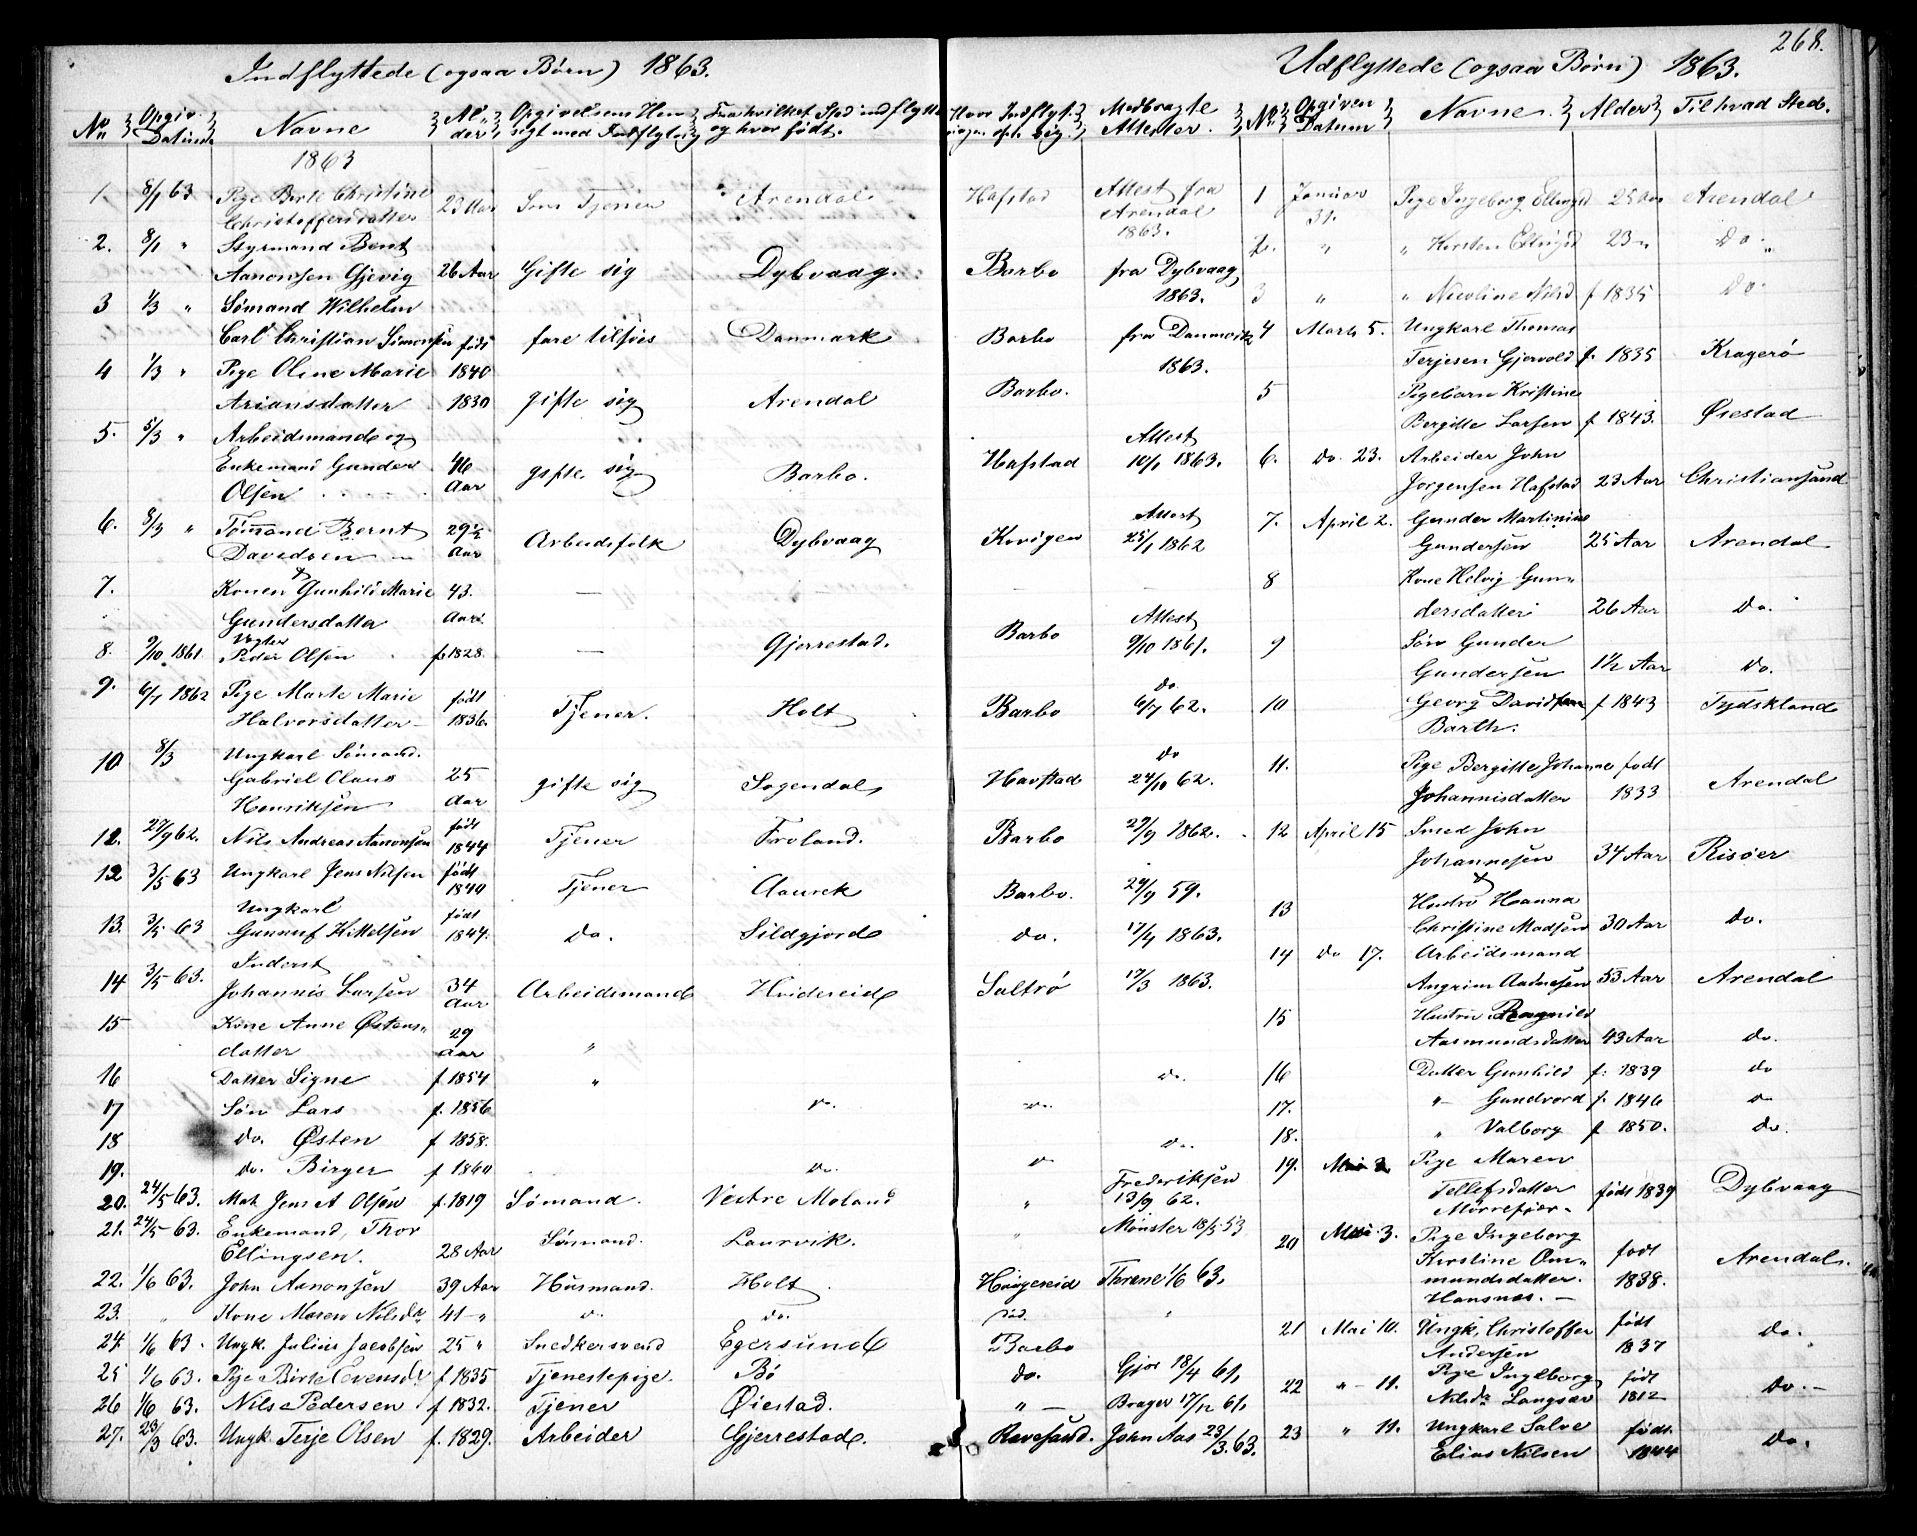 268.
Indflyttede (ogsaa Børn) 1863.
No Opgiv. Datum Navne Alder Opgivelsens Hensigt med Indflytn. Fra hvilket Sted indflyttet og hvor født. Hvor Indflyt. Medbragte Attester.
1863
1 8/1 63 Pige Berte Christine
Christoffersdatter 23 Aar Tjener Arendal Hafstad Attest fra Arendal 1863.
2. 8/1 " Styrmand Bent
Aanonsen Gjevig 26 Aar Gifte sig Dybvaag. Barbo fra Dybvaag 1863.
3 1/3 " Sømand Wilhelm
Carl Christian Simonsen født 1840 fare tilsøes Danmark Barbo fra Danmark 1863.
4 1/3 " Pige Oline Marie
Ariansdatter 1830 gifte sig Arendal Barbo.
5. 5/3 " Arbeidsmand og
Enkemand Gunder
Olsen 46 Aar gifte sig Barbo. Hafstad Attest 10/1 1863.
6. 8/3 " Tømand Bernt
Davidsen 29 1/2 Aar Arbeidsfolk Dybvaag Attest 25/1 1862
7. Konen Gunhild Marie
Gundersdatter 43. Aar — —
8. 9/10 1861 Peder Olsen f 1828 — Gjerrestad. Barbo Attest 9/10 1861.
9. 6/7 1862 Pige Marte Marie
Halvorsdatter født 1836. Tjener. Holt Barbo do 6/7 62.
10 8/3 Ungkarl Sømand.
Gabriel Olaus
Henriksen 25 Aar gifte sig Sogendal Havstad do 24/10 62.
12. 29/9 62. Nils Andreas Aanonsen født 1844 Tjener Froland. Barbo 29/9 1862.
12 3/5 63 Ungkarl Jens Nilsen født 1840 Tjener Barbo. 24/9 59.
13. 3/5 63 Ungkarl
Gunnuf Kittelsen født 1847. Do. Sildgjord do. 17/4 1863.
14 3/5 63. Inderst
Johannis Larsen 34 Aar Arbeidsmand Hvidereid Saltrø 17/3 1863.
15 Kone Anne Østens-
datter 29 Aar "
16 Datter Signe f 1854 " do.
17 Søn Lars f. 1856 do. do.
18 do. Østen f 1858. do.
19. do. Birger f 1860 do. do
20. 24/5 63. Mat. Jens A Olsen f. 1819 Sømand. Vestre Moland " Frederiksen 13/9 62.
21. 24/5 63. Enkemand, Thor
Ellingsen. 28 Aar Sømand. Laurvik. " Mønster 18/5 53
22. 1/6 63. John Aanonsen 39 Aar Husmand. Holt Thrane 1/6 63.
23. " Kone Maren Nilsda 41 " do. do. "
24. 1/6 63. Ungk. Julius Jacobsen 25 " Snedkersvend Egersund Barbo
25 1/6 63. Pige Birte Evensda f 1835 Tjenestepige. Bø do. Gjør 18/4 61,
26 1/6 63. Nils Pedersen f 1832. Tjener Øiestad. " — Brager 17/12 61
27. 23/3 63. Ungk. Terje Olsen f. 1829. Arbeider Gjerrestad. Revesand. John Aas 23/3. 63.
Udflyttede (ogsaa Børn) 1863.
No Opgiven Datum Navne. Alder Til hvad Sted.
1 Januar 31. Pige Ingeborg Ellingsd 25 Aar Arendal
2. " " Kirsten Ellingsd 23 " Do. "
3 " " Nicoline f 1835 Do.
4 Marts 5. Ungkarl Thomas
Terjesen Gjervold f. 1835 Kragerø
5 Pigebarn Kristine
Bergitte Larsen f 1843. Øiestad
6. Do. 23. Arbeider John
Jorgensen Hafstad 23 Aar Christiansand
7. April 2. Gunder Martinius
Gundersen 25 Aar Arendal
8 Kone Helvig Gun-
dersdatter 26 Aar Do.
9 Søn Gunder
Gundersen 1 1/2 Aar Do.
10 Georg Davidsen
Barth. f 1843 Tydskland
11. Pige Bergitte Johanne
Johannisdatter født 1833 Arendal
12 April 15 Smed John
Johannesen 34 Aar Risøer
13 Hustro Hanna
Christine Madsen 30 Aar do.
14 Do 17. Arbeidsmand
Angrim Aadnesen 53 Aar Arendal
15 Hustru Ragnild
Aasmundsdatter 43 Aar do.
16 Datter Gunhild f: 1839 do
17. " Gundvord f. 1846 do
18. " Valborg f 1850. do.
19. Mai 3 Pige Maren
Tellefsdatter
Mørrefjær. født 1839 Dybvaag
20 Mai 3. Pige Ingeborg
Kirstine Om-
mundsdatter.
Hansnæs. — født 1838. Arendal.
21 Mai 10. Ungk, Christoffer
Andersen født 1837 Do.
22 " — 11. Pige Ingeborg
Nilsda Langsæ født 1812 Do. —
23 " 11. Ungkarl Salve
Elias Nilsen født. 1844 Do.